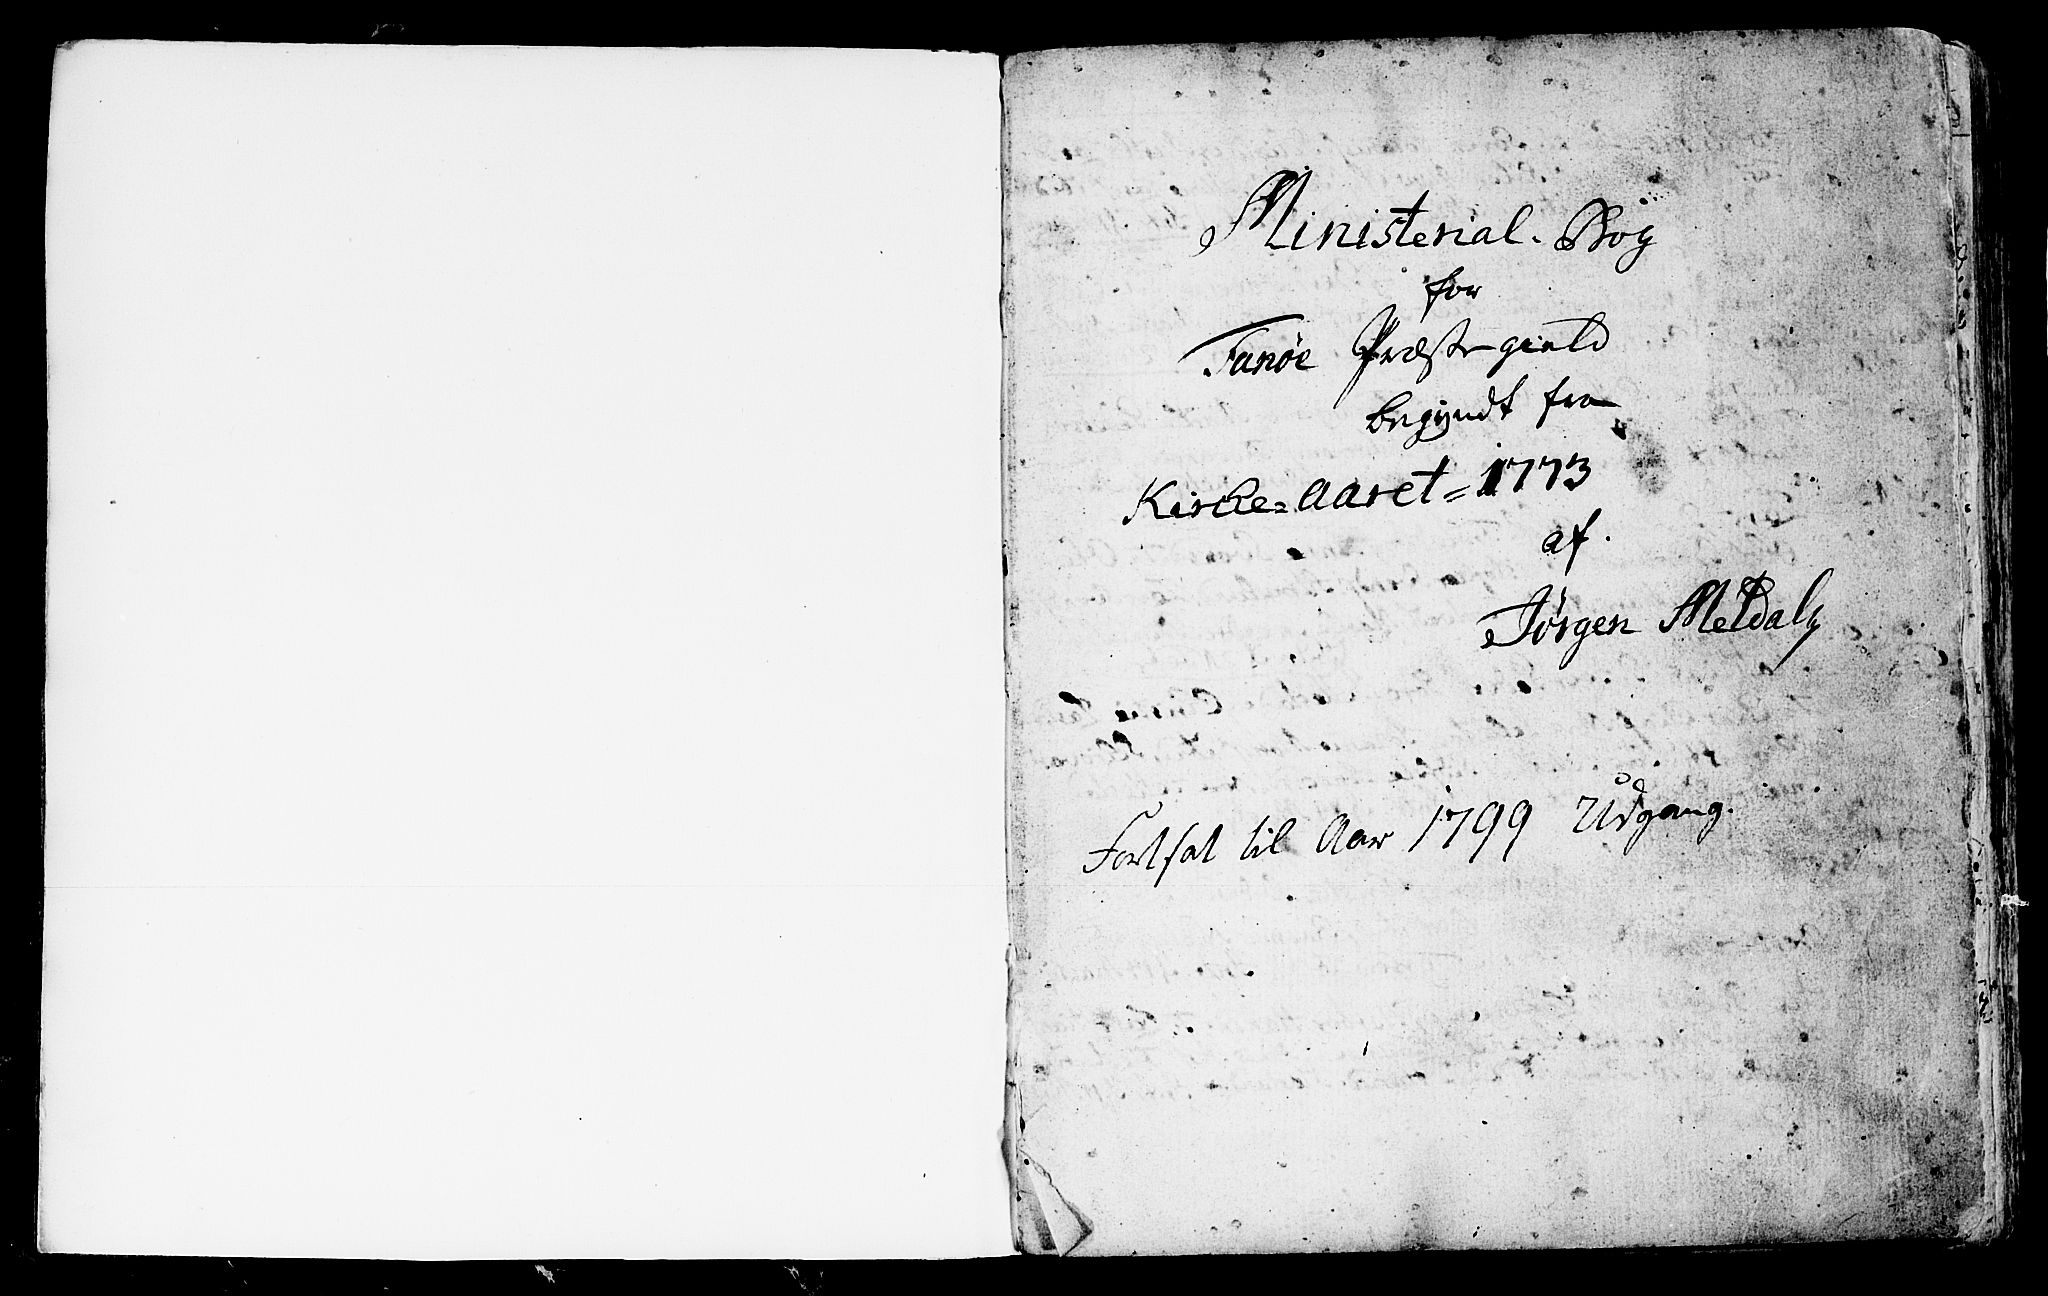 Ministerial-Bog
for
Tanøe Præstegield
begyndt fra
Kirke=Aaret=1773
af.
Jørgen Meldal
Fortsat til Aar 1799 Udgang.